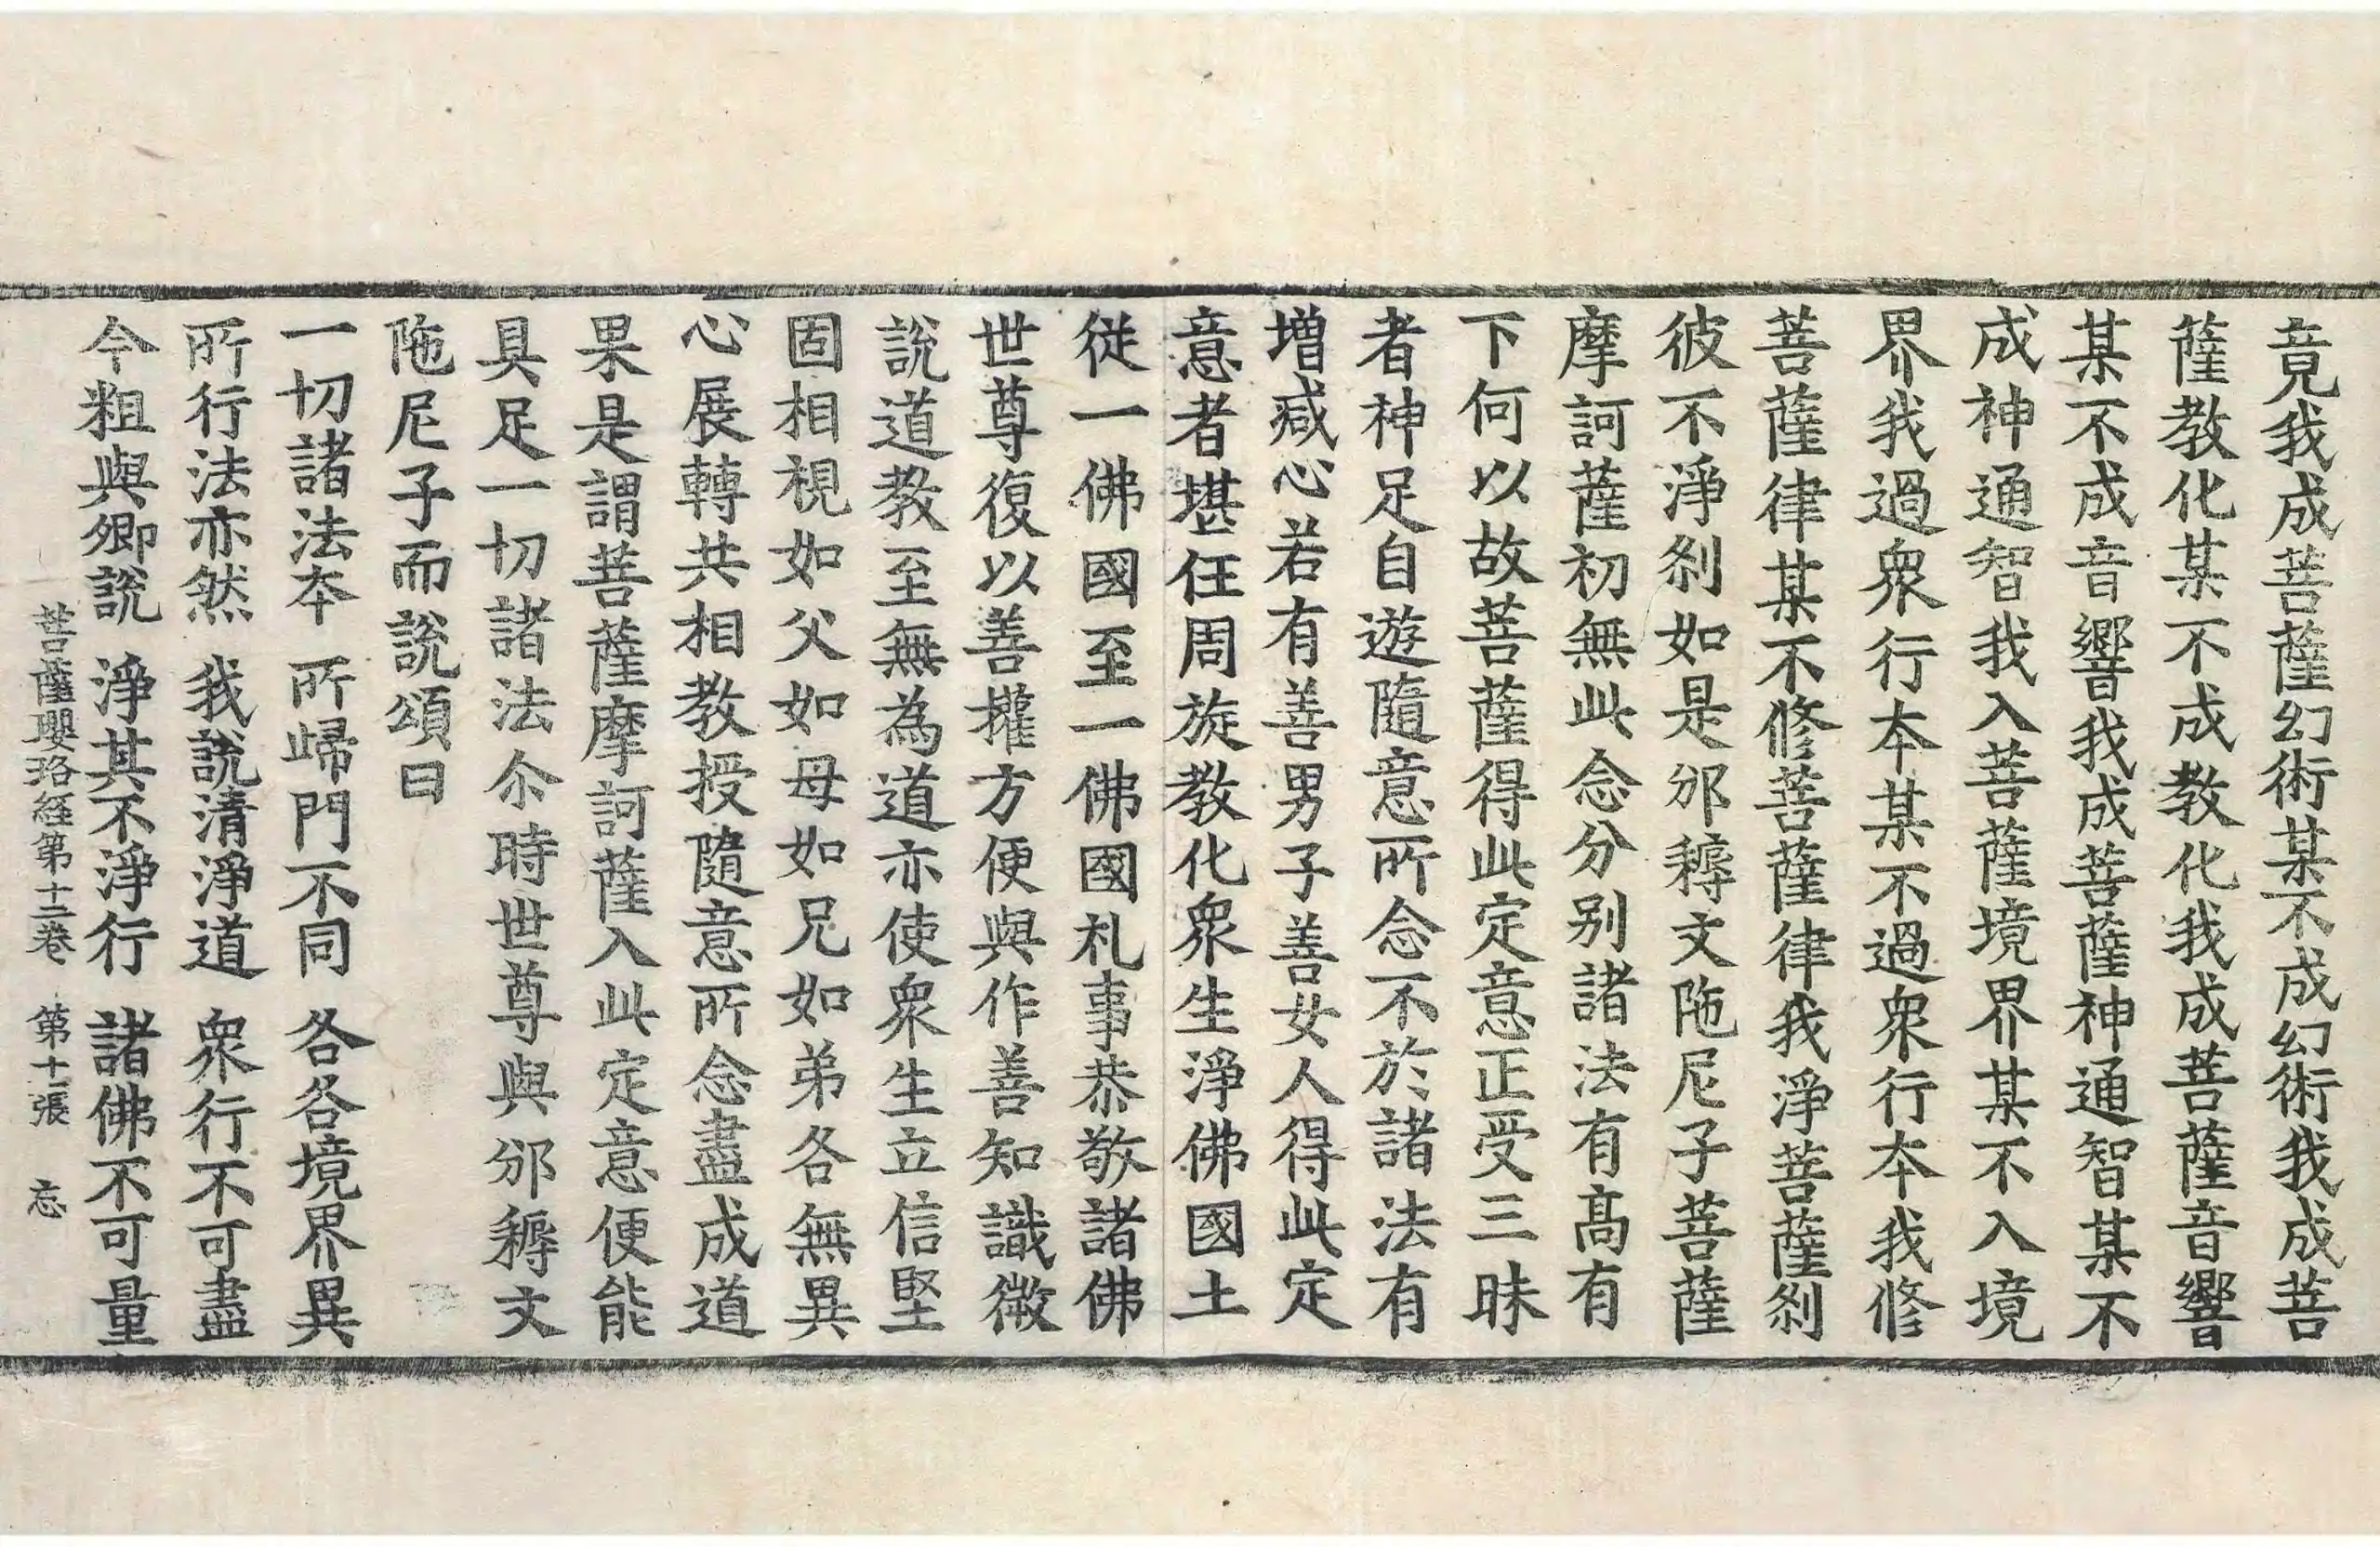 竟我成菩薩幻術某不成幻術我成菩
薩教化某不成教化我成菩薩音響
某不成音響我成菩薩神通智某不
成神通智我入菩薩境界某不入境
界我過衆行本某不過衆行本我修
菩薩律某不修菩薩律我淨菩薩刹
彼不淨刹如是邠耨文陁尼子菩薩
摩訶薩初無此念分别諸法有高有
下何以故菩薩得此定意正受三昧
者神足自遊隨意所念不於諸法有
増减心若有善男子善女人得此定
意者堪任周旋教化衆生淨佛國土
從一佛國至一佛國礼事恭敬諸佛
世尊復以善權方便與作善知識微
說道教至無為道亦使衆生立信堅
固相視如父如母如兄如弟各無異
心展轉共相教授隨意所念盡成道
果是謂菩薩摩訶薩入此定意便能
具足一切諸法尒時世尊與邠耨文
陁尼子而說頌曰
一切諸法本　所歸門不同　各各境界異
所行法亦然　我說清淨道　衆行不可盡
今粗與卿說　淨其不淨行　諸佛不可量
菩薩瓔珞経第十二卷　第十張　忘